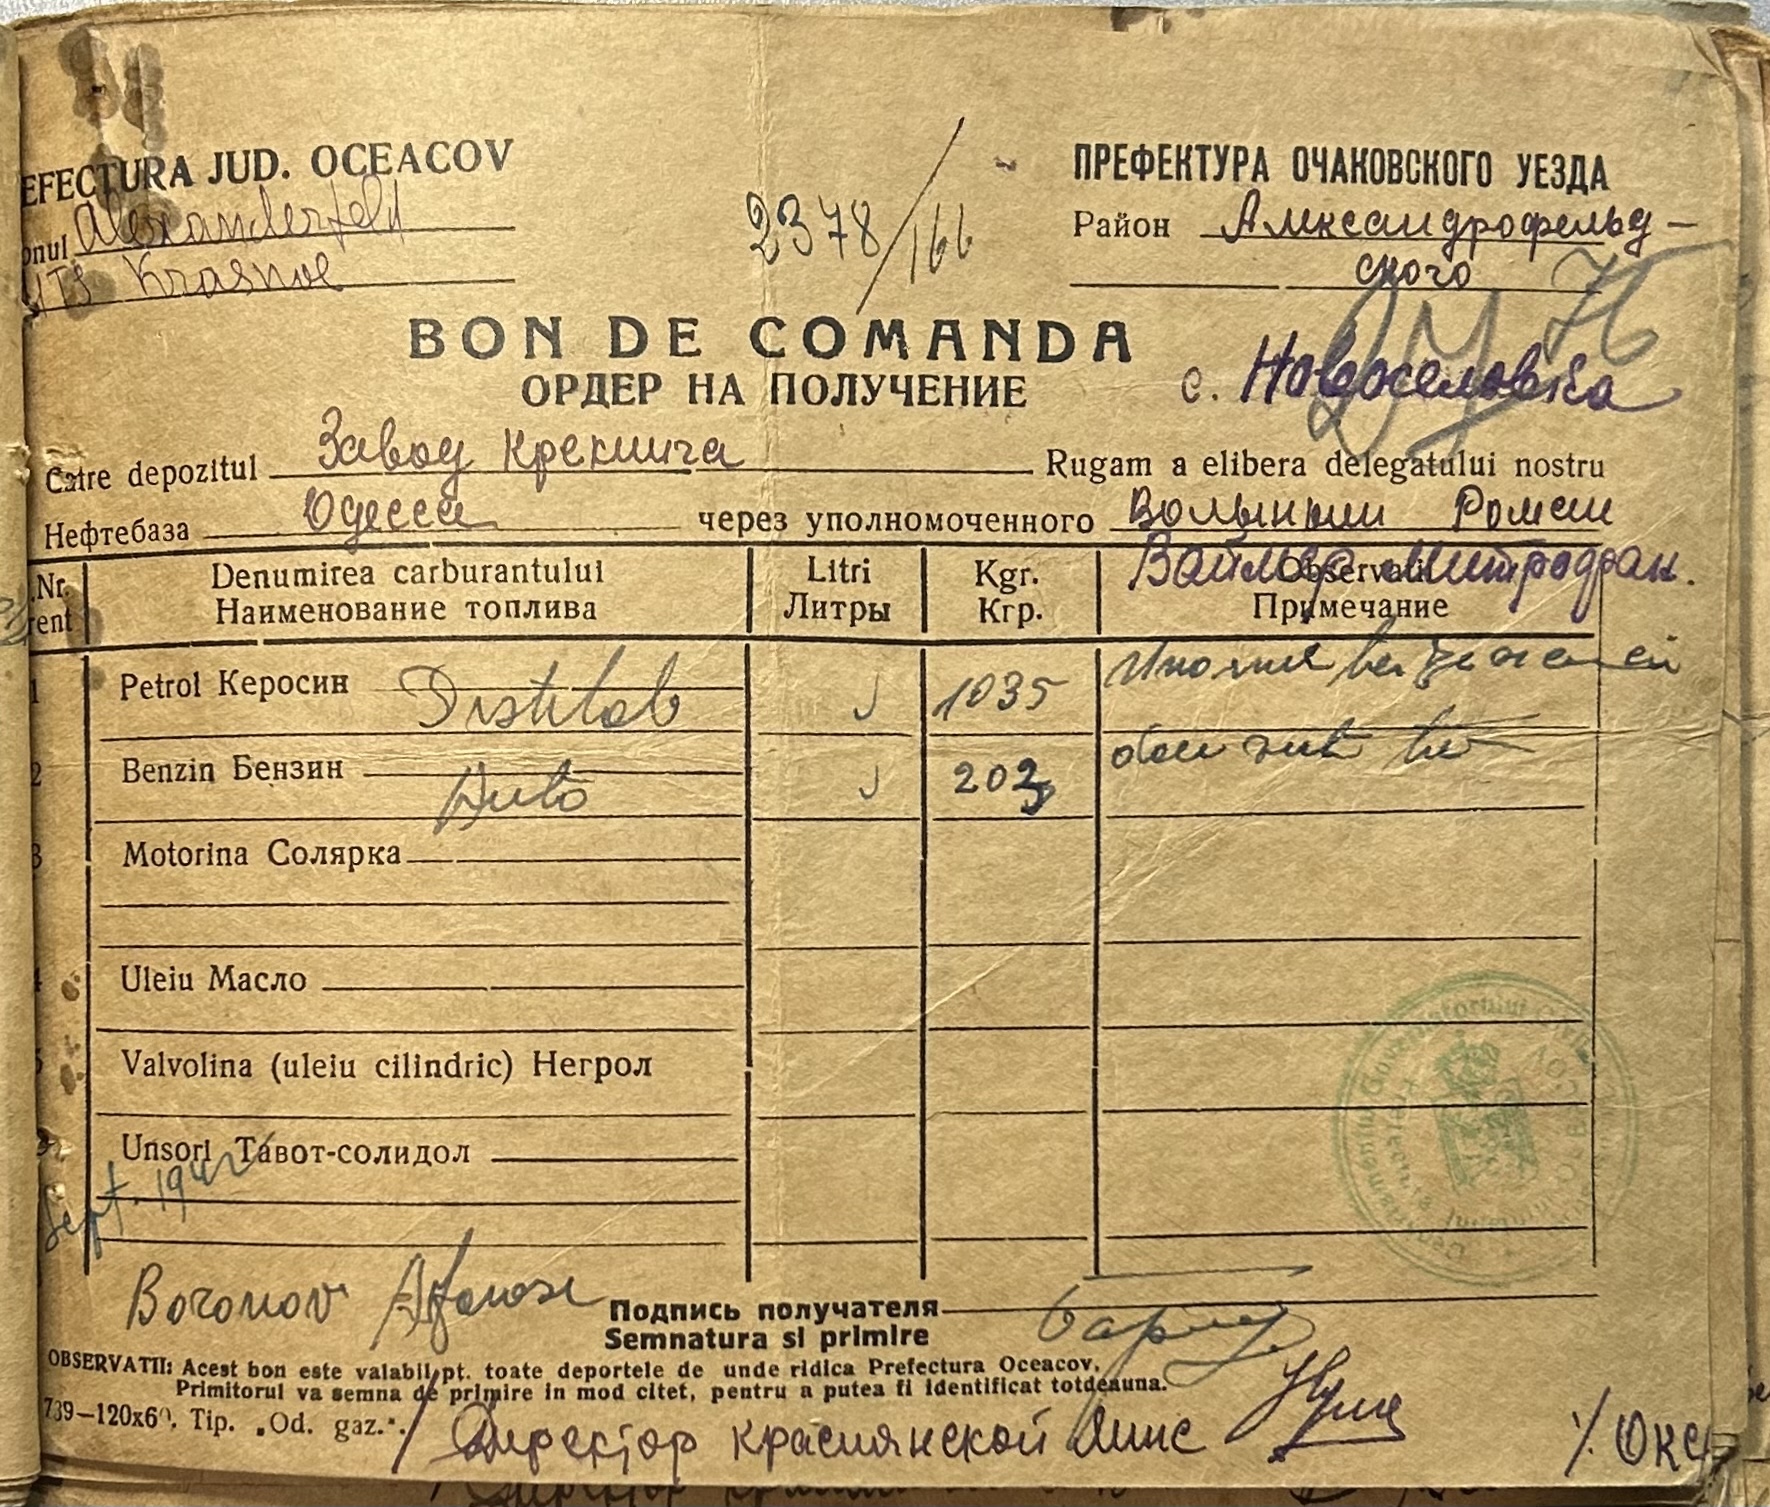 EFECTURA JUD. OCEACOV
onul Alexanderfeld
MTS Krasnoe
2378/166
ПРЕФЕКТУРА ОЧАКОВСКОГО УЕЗДА
Район Александрофельд-
ского
BON DE COMANDA
ОРДЕР НА ПОЛУЧЕНИЕ
с. Новоселовка
Catre depozitul Завод Крекинга Rugam a elibera delegatului nostru
Нефтебаза Одесса через уполномоченного Волынкин Роман
Вайлер Митрофан.
.Nr. Denumirea carburantului Litri Kgr. Observatii
rent Наименование топлива Литры Кгр. Примечание
1 Petrol Керосин Distilat 1035
2 Benzin Бензин Auto 203
3 Motorina Солярка
4 Uleiu Масло
5 Valvolina (uleiu cilindric) Негрол
Unsori Тавот-солидол
Sept. 1942
Boronov Afanasi
Подпись получателя
Semnatura si primire
OBSERVATII: Acest bon este valabil pt. toate deportele de unde ridica Prefectura Oceacov.
Primitorul va semna de primire in mod citet, pentru a putea fi identificat totdeauna.
739—120x60. Tip. „Od. gaz.".
Директор Краснянской Ммс